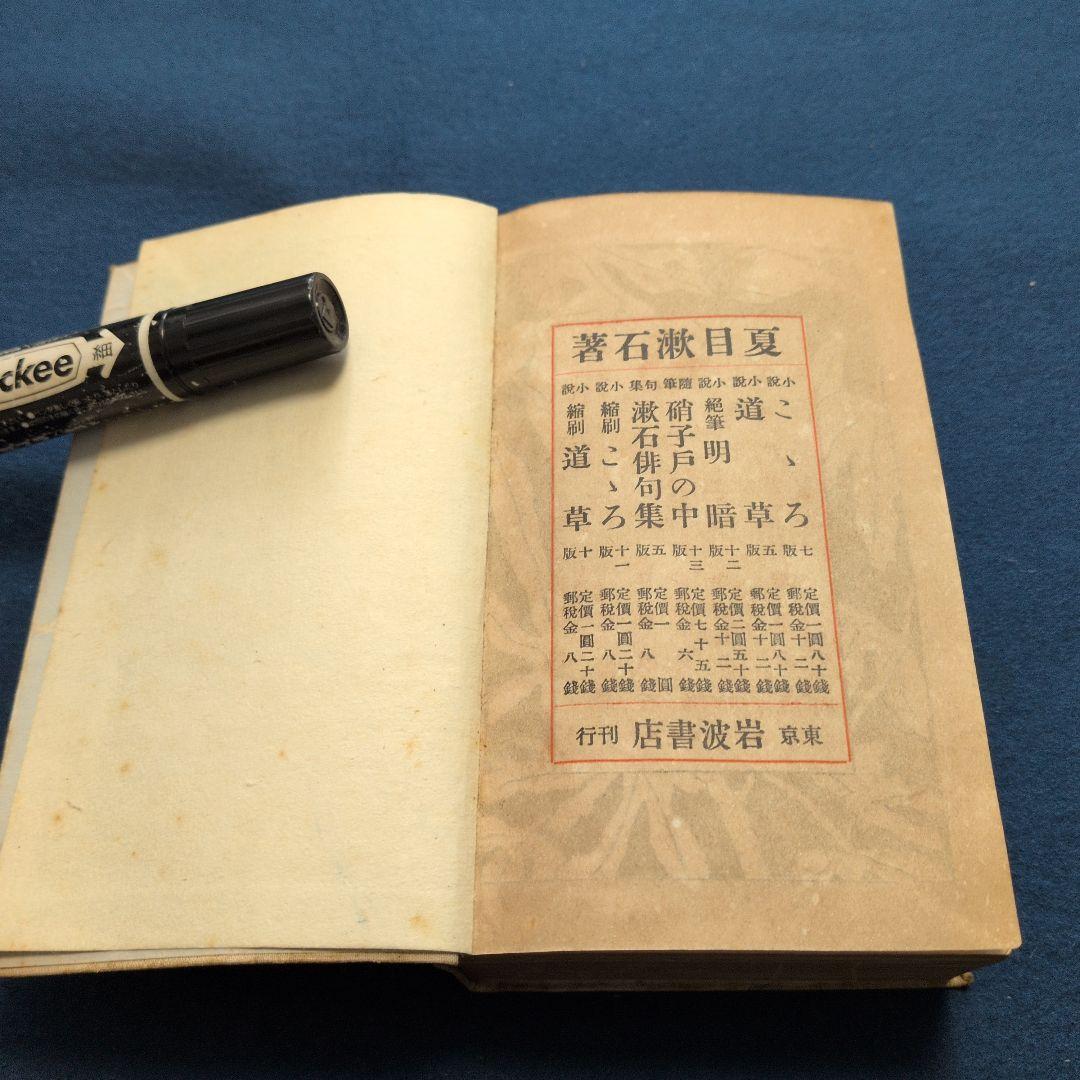 夏目漱石著
小説 こゝろ 七版 定價一圓八十錢 郵税金十二錢
小説 道草 五版 定價一圓八十錢 郵税金十二錢
小説 絕筆 明暗 十二版 定價二圓五十錢 郵税金十二錢
隨筆 硝子戸の中 十三版 定價七十五錢 郵税金六錢
句集 漱石俳句集 五版 定價一圓 郵税金八錢
小説 縮刷 こゝろ 十一版 定價一圓二十錢 郵税金八錢
小説 縮刷 道草 十版 定價一圓二十錢 郵税金八錢
東京 岩波書店 刊行
ckee 細